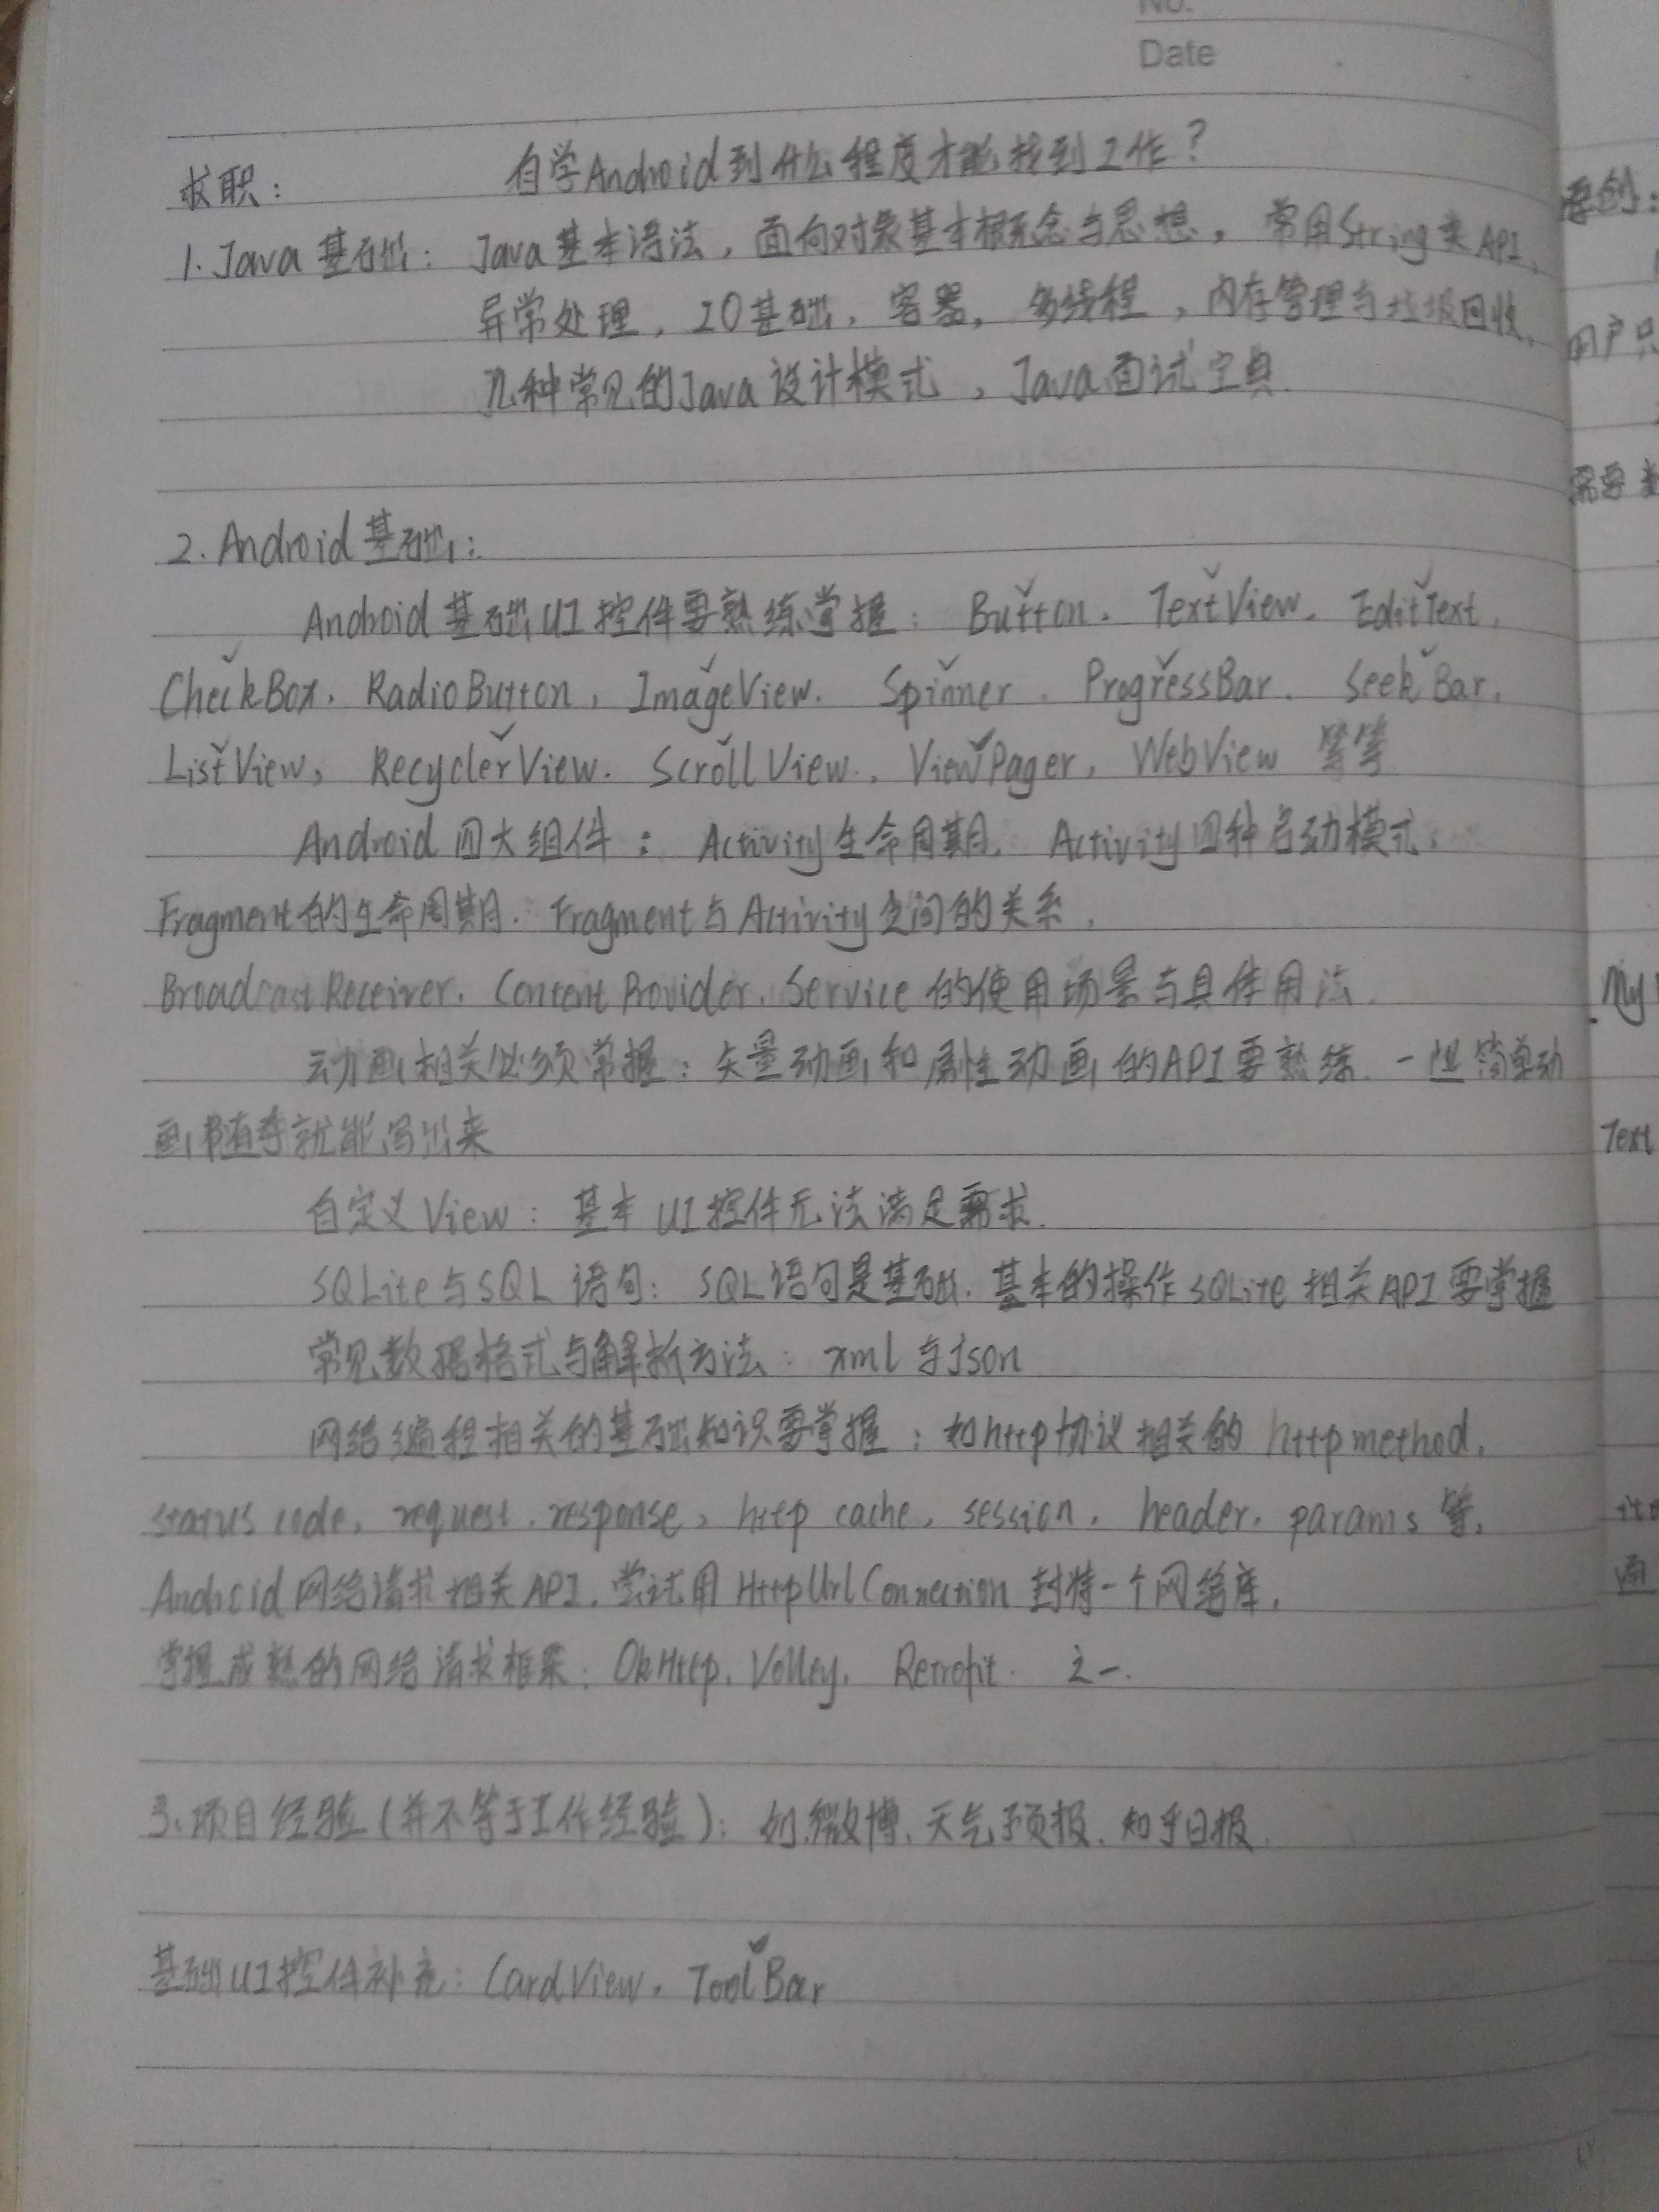 No.
Date
求职: 自学Android到什么程度才能找到工作?
1.Java基础: Java基本语法,面向对象基本概念与思想,常用String类API,
异常处理,IO基础,容器,多线程,内存管理与垃圾回收,
几种常见的Java设计模式,Java面试宝典.
2.Android基础:
Android基础UI控件要熟练掌握: Button、TextView、EditText、
CheckBox、RadioButton、ImageView、Spinner、ProgressBar、SeekBar、
ListView、RecyclerView、ScrollView、ViewPager、WebView 等等
Android四大组件: Activity生命周期、Activity四种启动模式、
Fragment的生命周期、Fragment与Activity之间的关系、
BroadcastReceiver、ContentProvider、Service的使用场景与具体用法.
动画相关必须掌握:矢量动画和属性动画的API要熟练.一些简单动
画随手就能写出来
自定义View: 基本UI控件无法满足需求.
SQLite与SQL语句: SQL语句是基础.基本的操作SQLite相关API要掌握
常见数据格式与解析方法: xml与Json
网络编程相关的基础知识要掌握: 如http协议相关的 http method、
status code、request、response、http cache、session、header、params等,
Android网络请求相关API.尝试用HttpUrlConnection封装一个网络库,
掌握成熟的网络请求框架: OkHttp、Volley、Retrofit. 之一.
3.项目经验(并不等于工作经验): 如微博、天气预报、知乎日报.
基础UI控件补充: CardView、ToolBar
用户
需要
My
Text